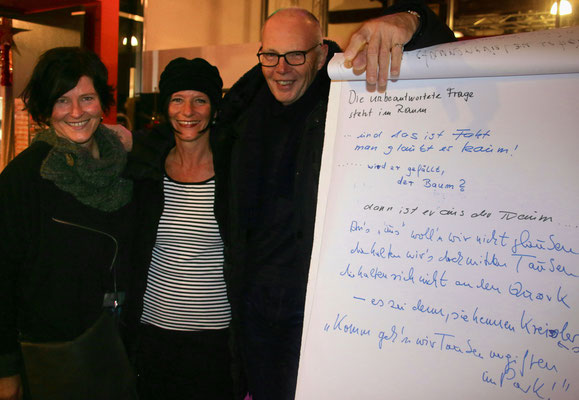 Die unbeantwortete Frage
steht im Raum
... und das ist Fakt
man glaubt es kaum!
..... wird er gefällt,
der Baum?
dann ist er aus der Traum ....
woll'n wir nicht glauben
wir's doch mit den Tauben
die halten sich nicht an den Quark
— es sei denn, sie kennen Kreislers
"Komm geh'n wir Tauben vergiften
im Park!"